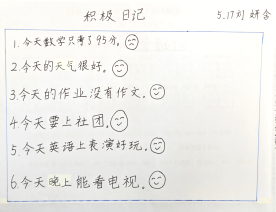 积极日记 5.17刘妍含
1.今天数学只考了95分。
2.今天的天气很好。
3.今天的作业没有作文。
4.今天要上社团。
5.今天英语上表演好玩。
6.今天晚上能看电视。